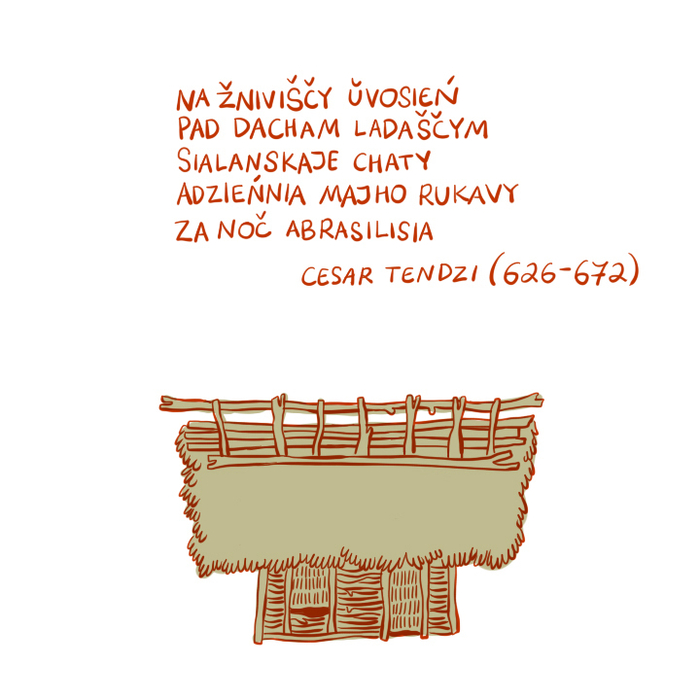 NA ŽNIVIŠČY ŬVOSIEŃ
PAD DACHAM LADAŠČYM
SIALANSKAJE CHATY
ADZIEŃNIA MAJHO RUKAVY
ZA NOČ ABRASILISIA
CESAR TENDZI (626-672)